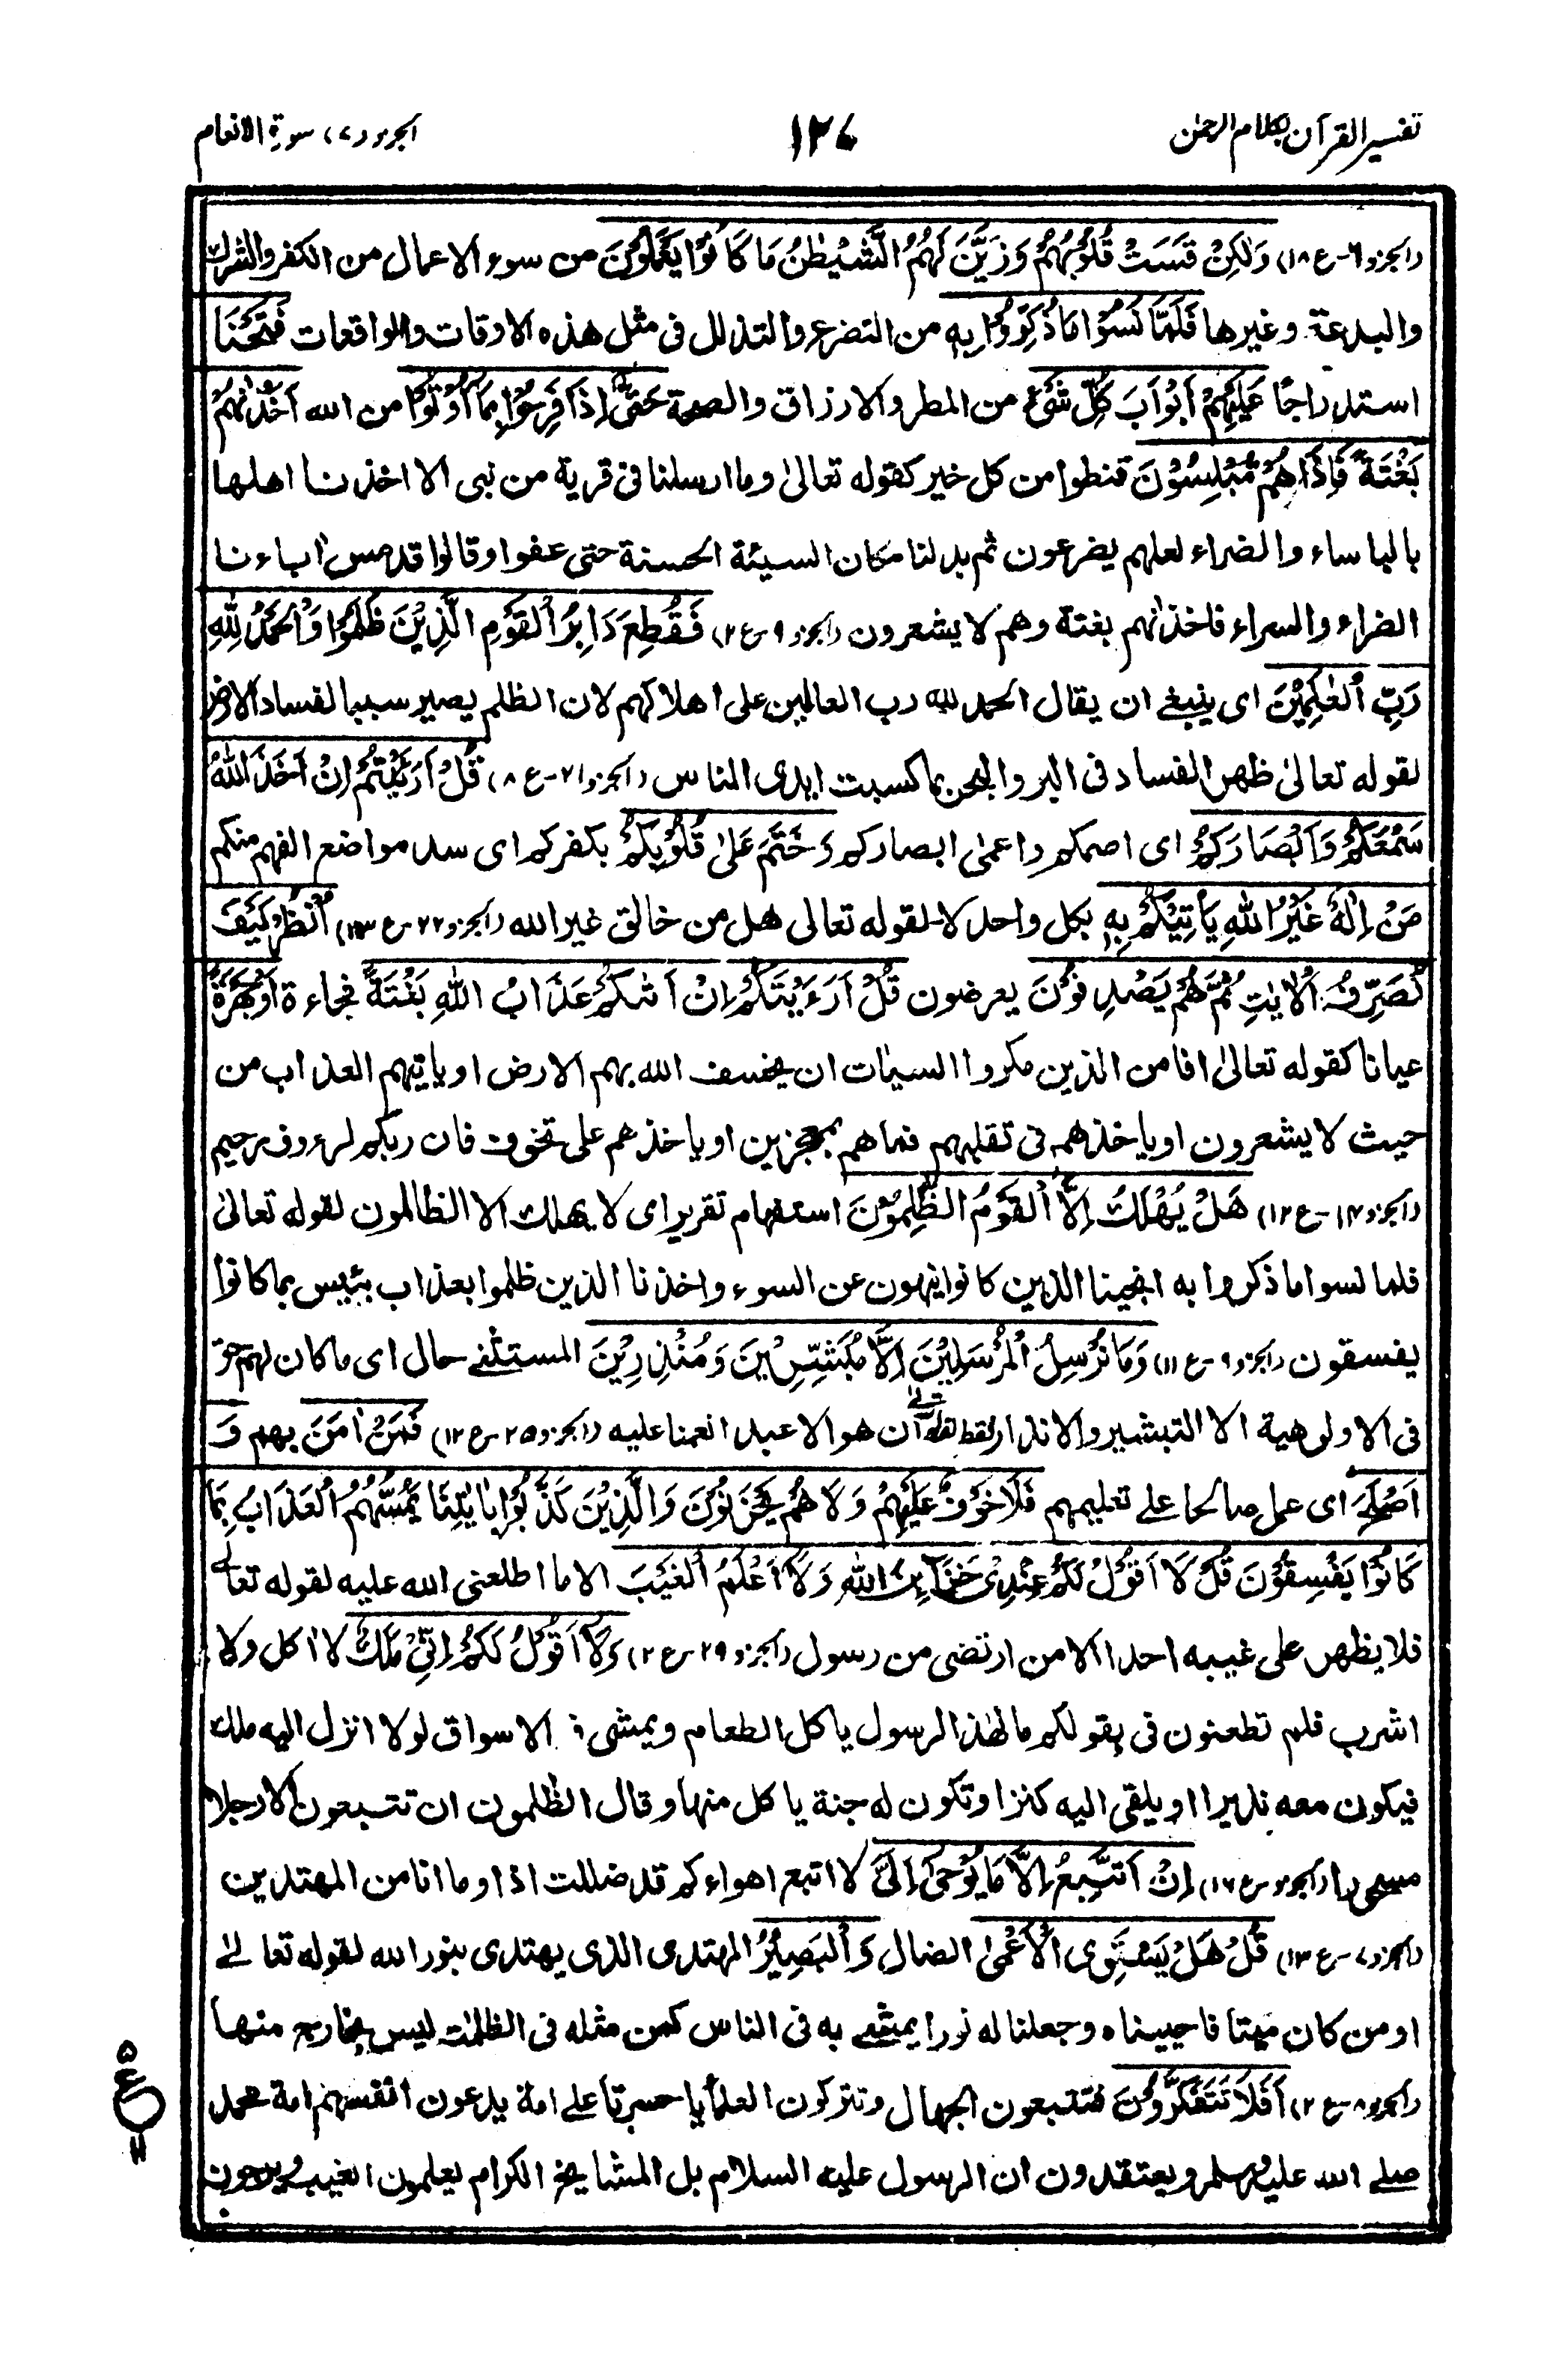 تفسير القرآن بكلام الرحمٰن
١٢٧
الجزو (٧) سورة الانعام
(الجزو ٦ - ع ١٨) وَلٰكِنْ قَسَتْ قُلُوْبُهُمْ وَزَيَّنَ لَهُمُ الشَّيْطٰنُ مَا كَانُوْا يَعْمَلُوْنَ من سوء الاعمال من الكفر والشرك
والبدعة وغيرها فَلَمَّا نَسُوْا مَا ذُكِّرُوْا بِهٖ من التضرع والتذلل فى مثل هذه الاوقات والواقعات فَتَحْنَا
استدراجًا عَلَيْهِمْ اَبْوَابَ كُلِّ شَیْءٍ من المطر والارزاق والصحة حَتّٰٓى اِذَا فَرِحُوْا بِمَآ اُوْتُوْا من الله اَخَذْنٰهُمْ
بَغْتَةً فَاِذَا هُمْ مُّبْلِسُوْنَ قنطوا من كل خير كقوله تعالىٰ وما ارسلنا فى قرية من نبى الا اخذنا اهلها
بالباساء والضراء لعلهم يضرعون ثم بدلنا مكان السيئة الحسنة حتى عفوا وقالوا قد مس اٰباءنا
الضراء والسراء فاخذنٰهم بغتة وهم لا يشعرون (الجزو ٩ - ع ٢) فَقُطِعَ دَابِرُ الْقَوْمِ الَّذِيْنَ ظَلَمُوْا وَالْحَمْدُ لِلّٰهِ
رَبِّ الْعٰلَمِيْنَ اى ينبغى ان يقال الحمد لله رب العالمين على اهلاكهم لان الظلم يصير سببا لفساد الارض
لقوله تعالىٰ ظهر الفساد فى البر والبحر بما كسبت ايدى الناس (الجزو ٢١ - ع ٨) قُلْ اَرَءَيْتُمْ اِنْ اَخَذَ اللّٰهُ
سَمْعَكُمْ وَاَبْصَارَكُمْ اى اصمكم واعمىٰ ابصاركم وَخَتَمَ عَلٰى قُلُوْبِكُمْ بكفركم اى سد مواضع الفهم منكم
مَنْ اِلٰهٌ غَيْرُ اللّٰهِ يَاْتِيْكُمْ بِهٖ بكل واحد لا لقوله تعالى هل من خالق غير الله (الجزو ٢٢ - ع ١٣) اُنْظُرْ كَيْفَ
نُصَرِّفُ الْاٰيٰتِ ثُمَّ هُمْ يَصْدِفُوْنَ يعرضون قُلْ اَرَءَيْتَكُمْ اِنْ اَتٰىكُمْ عَذَابُ اللّٰهِ بَغْتَةً فجاءة اَوْ جَهْرَةً
عيانا كقوله تعالىٰ افامن الذين مكروا السيئات ان يخسف الله بهم الارض او ياتيهم العذاب من
حيث لا يشعرون او ياخذهم فى تقلبهم فما هم بمعجزين او ياخذهم على تخوف فان ربكم لرءوف رحيم
(الجزو ١٤ - ع ١٢) هَلْ يُهْلَكُ اِلَّا الْقَوْمُ الظّٰلِمُوْنَ استفهام تقرير اى لا يهلك الا الظالمون لقوله تعالىٰ
فلما نسوا ما ذكروا به انجينا الذين كانوا ينهون عن السوء واخذنا الذين ظلموا بعذاب بئيس بما كانوا
يفسقون (الجزو ٩ - ع ١١) وَمَا نُرْسِلُ الْمُرْسَلِيْنَ اِلَّا مُبَشِّرِيْنَ وَمُنْذِرِيْنَ المستثنے حال اى ما كان لهم حق
فى الاولوهية الا التبشير والانذار فقط لقوله تعالىٰ ان هو الا عبد انعمنا عليه (الجزو ٢٥ - ع ١٢) فَمَنْ اٰمَنَ بهم وَ
اَصْلَحَ اى عمل صالحا علے تعليمهم فَلَا خَوْفٌ عَلَيْهِمْ وَلَا هُمْ يَحْزَنُوْنَ وَالَّذِيْنَ كَذَّبُوْا بِاٰيٰتِنَا يَمَسُّهُمُ الْعَذَابُ بِمَا
كَانُوْا يَفْسُقُوْنَ قُلْ لَا اَقُوْلُ لَكُمْ عِنْدِىْ خَزَآئِنُ اللّٰهِ وَلَآ اَعْلَمُ الْغَيْبَ الا ما اطلعنى الله عليه لقوله تعالےٰ
فلا يظهر على غيبه احدا الا من ارتضى من رسول (الجزو ٢٩ - ع ٢) وَلَآ اَقُوْلُ لَكُمْ اِنِّىْ مَلَكٌ لا اٰكل ولا
اشرب فلم تطعنون فى بقولكم ما لهٰذا الرسول ياكل الطعام ويمشى فى الاسواق لولا انزل اليه ملك
فيكون معه نذيرا او يلقى اليه كنز او تكون له جنة ياكل منها وقال الظٰلمون ان تتبعون الا رجلا
مسحورا (الجزو ع ١٦) اِنْ اَتَّبِعُ اِلَّا مَا يُوْحٰى اِلَىَّ لا اتبع اهواءكم قد ضللت اذا وما انا من المهتدين
(الجزو ٧ - ع ١٣) قُلْ هَلْ يَسْتَوِى الْاَعْمٰى الضال وَالْبَصِيْرُ المهتدى الذى يهتدى بنور الله لقوله تعالىٰ
اومن كان ميتا فاحييناه وجعلنا له نورا يمشے به فى الناس كمن مثله فى الظلمٰت ليس بخارج منها
(الجزو ٨ - ع ٢) اَفَلَا تَتَفَكَّرُوْنَ فتتبعون الجهال وتتركون العلمآ يا حسرتا علے امة يدعون انفسهم امة محمد
صلے الله عليه وسلم ويعتقدون ان الرسول عليه السلام بل المشايخ الكرام يعلمون الغيب ويرجون
٥
ع
١١